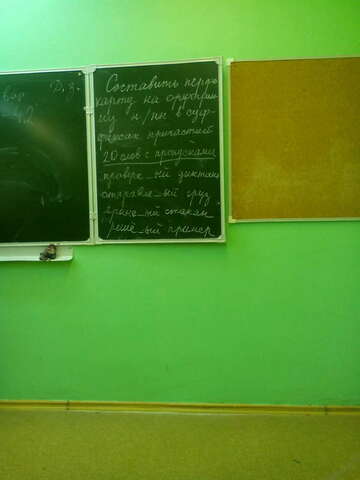 вар. Д.з.
12
Составить перфо
карту на орфограм
му н/нн в суф-
фиксах причастий
20 слов с пропусками
проверк_ый диктант
отправле_ый груз
_ый стакан
решё_ый пример